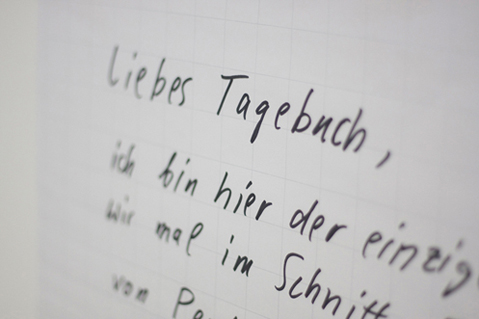 Liebes Tagebuch,
ich bin hier der einzig
wir mal im Schnitt
von Pe